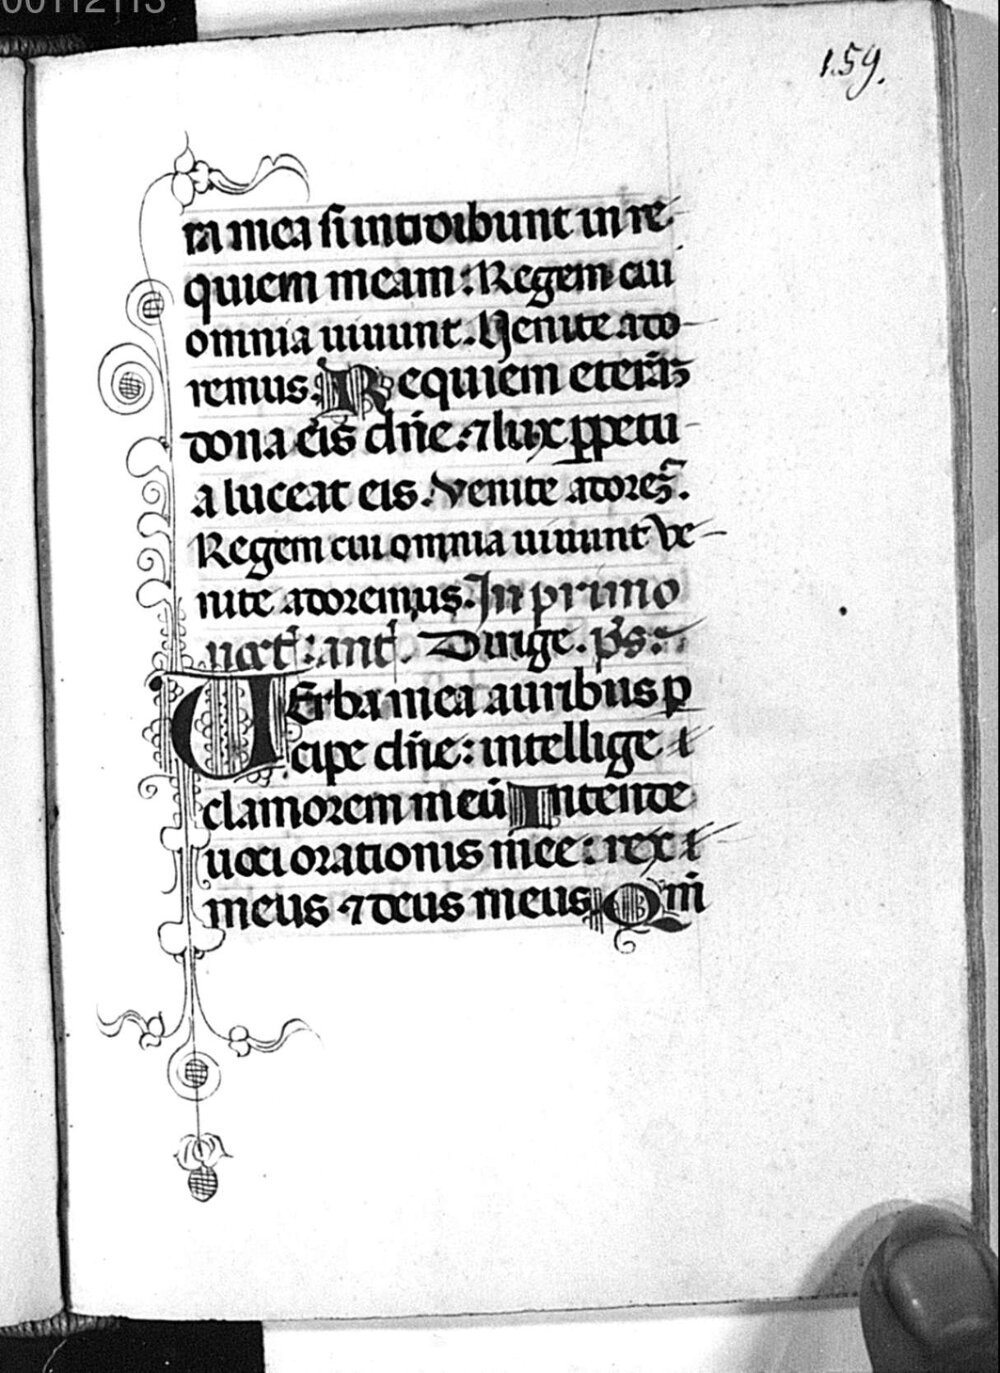 00112113
159.
ra mea si introibunt in re-
quiem meam: Regem cui
omnia uiuunt. Venite ado-
remus. Requiem eternā
dona eis dn̄e: ⁊ lux ꝑpetu-
a luceat eis. Venite adores̄.
Regem cui omnia uiuunt Ve-
nite adoremus. In primo
noct̄: ant̄. Dirige. ps̄.
UErba mea auribus ꝑ
cipe dn̄e: intellige
clamorem meū Intende
uoci orationis mee: rex
meus ⁊ deus meus Qm̄